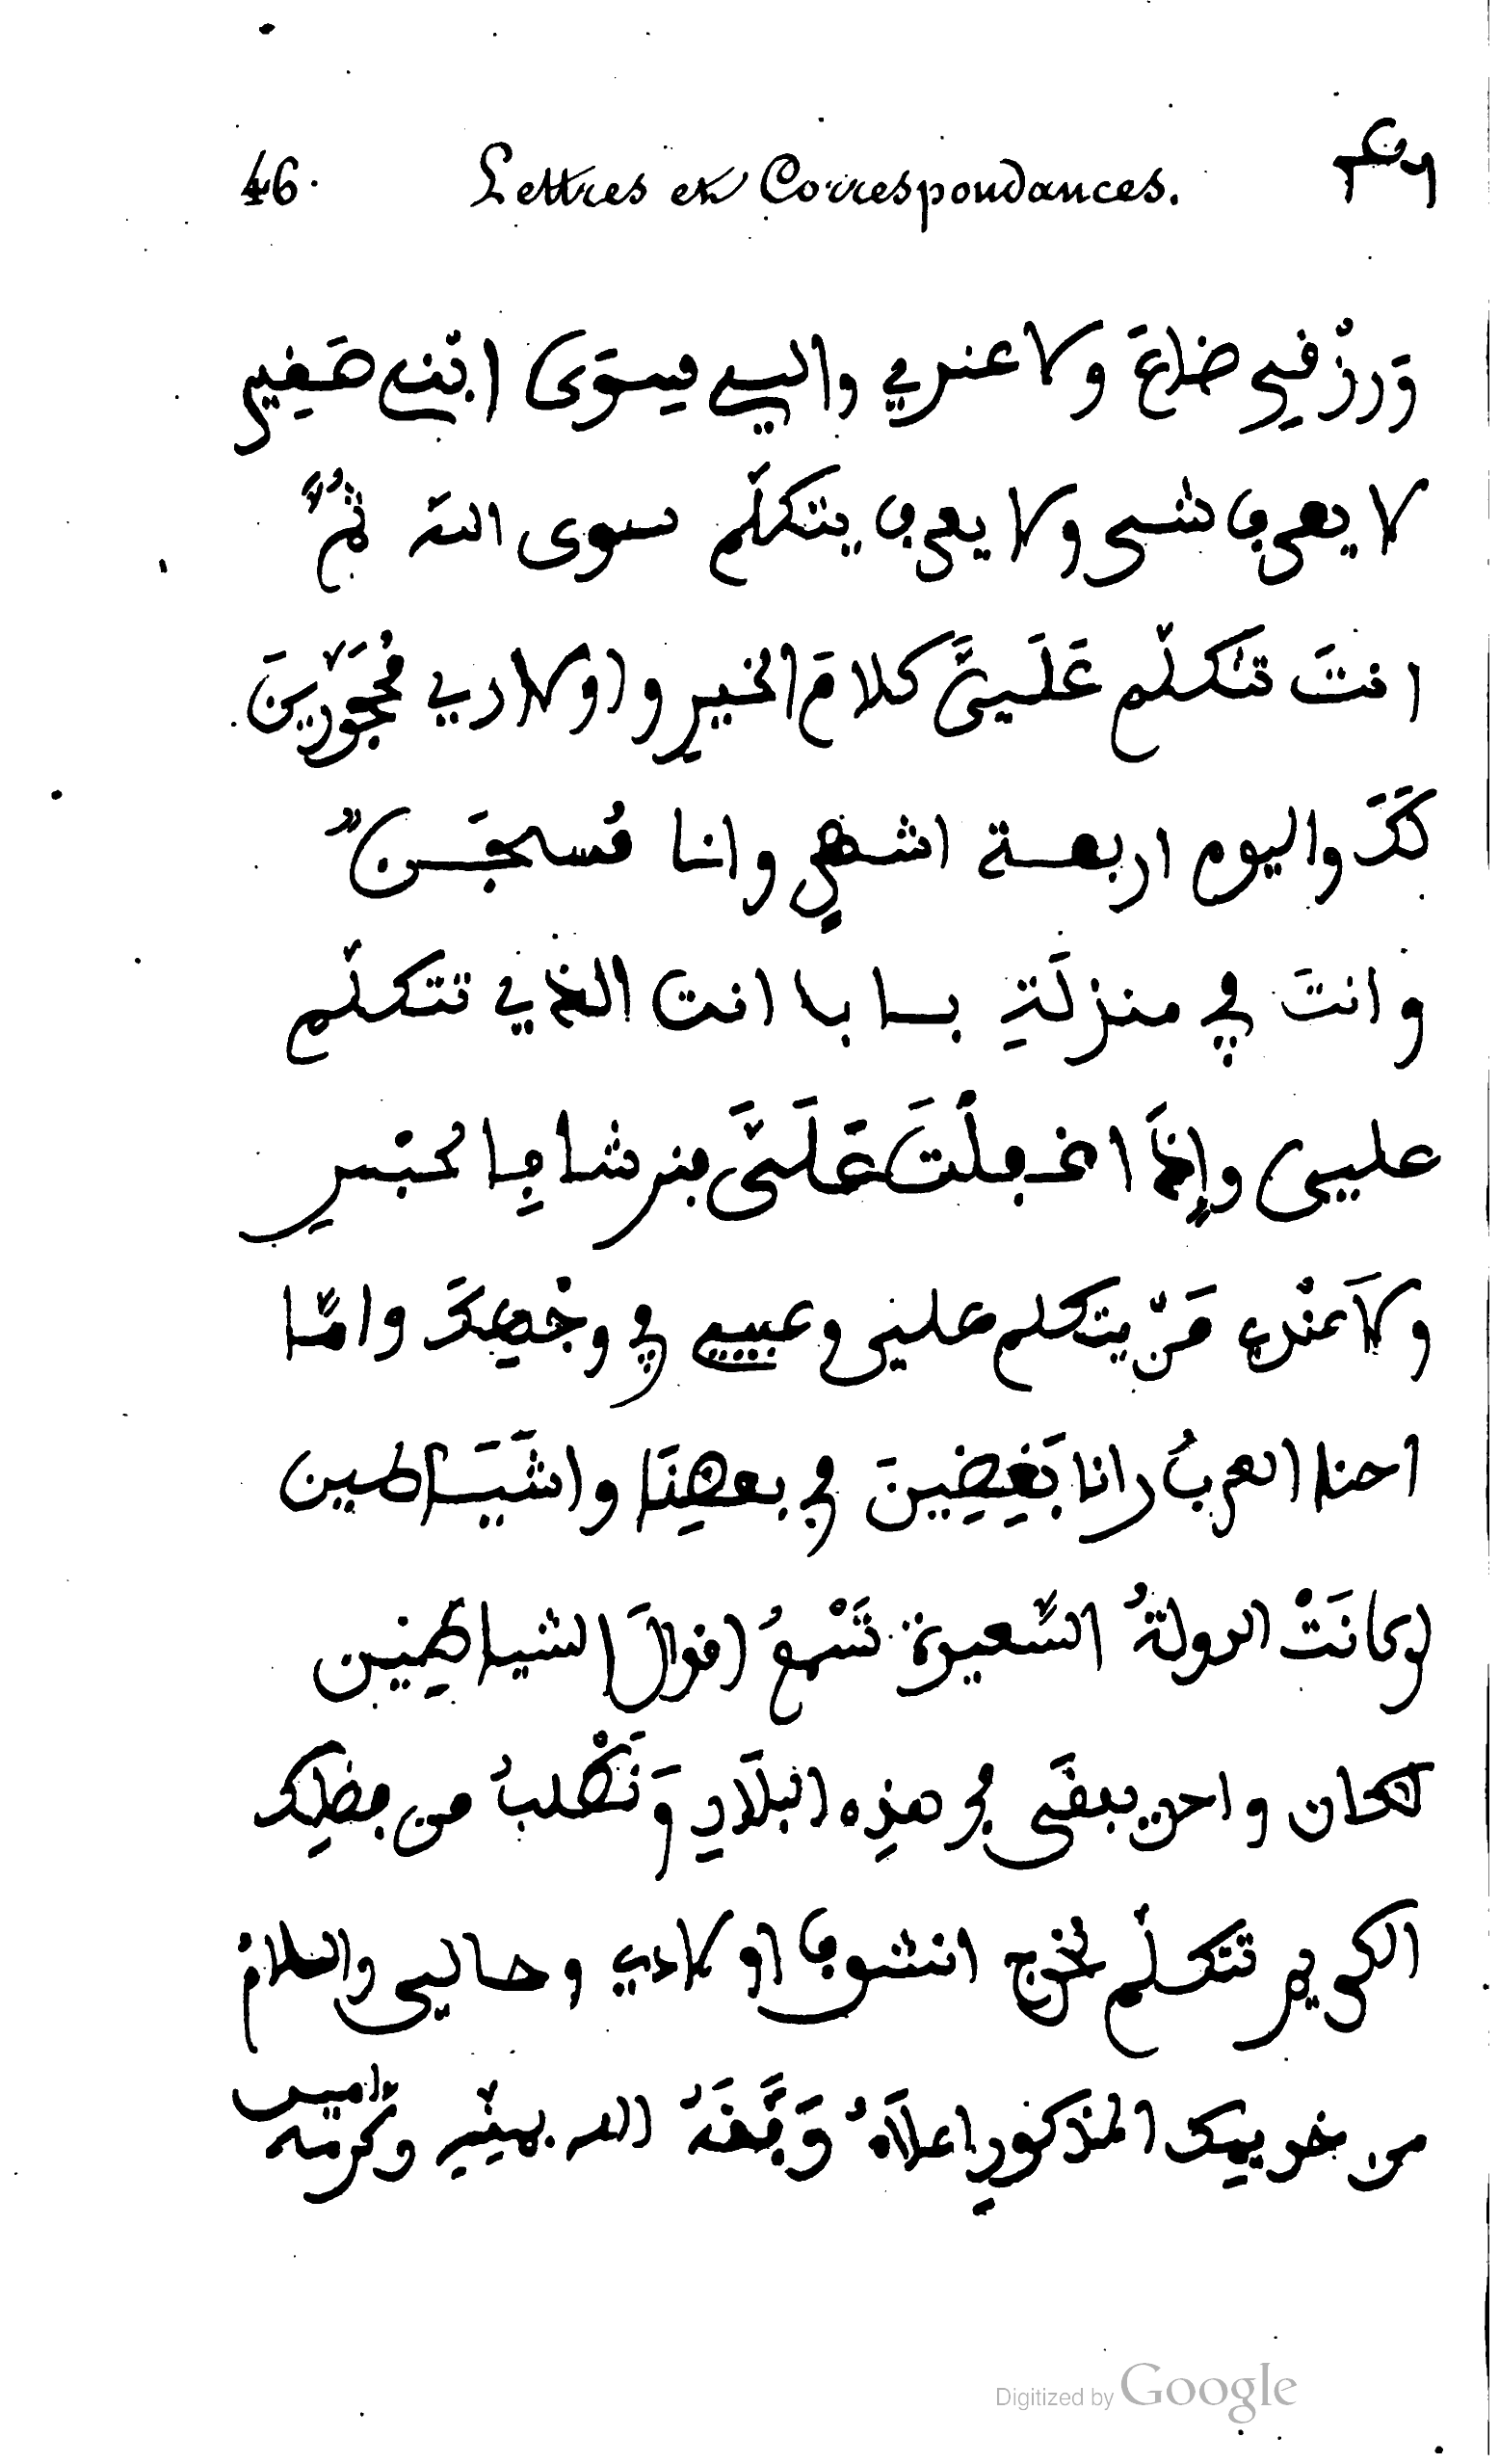 46. Lettres et Correspondances. ٤٦
وَرزْفي ضاعَ ولا عندي واليي فيسوَى ابْني صَغِير
لا يعرف شي ولا يعرف يتكلّم سوى اللّه ثُمَّ
انتَ تتكلّم عَلَييَّ كلامَ الخيرِ واولادي مُحَجَّوَرِينَ
كَكَرَ واليوم اربعة اشهرٍ وانا مُسحجَن
وانتَ في منزلَةِ بابا انت الذي تتكلّم
علييى وإنّما اغفلْتَ عَلَيَّ
ولا عَنْدي مَنّ يتكلم عليى وعيبي في وجْهِكَ وامّا
احنا العربُ رانا بَغِضِينَ في بعضِنَا والشَيَاطين
لو كانَتْ الدولةُ السّعيدة تَسْمعُ اقوالَ الشياطِين
لكان واحد يبقَى في هذه البلَادِ وَنَطْلبُ من فضلِك
الكريم تتكلّم نخرج انشوف اولادي وحاليى والسلامُ
من خديمك المذكورِ اعلَاهُ وَفَّقَهُ الله بمنّه وكرمه امين
Digitized by Google